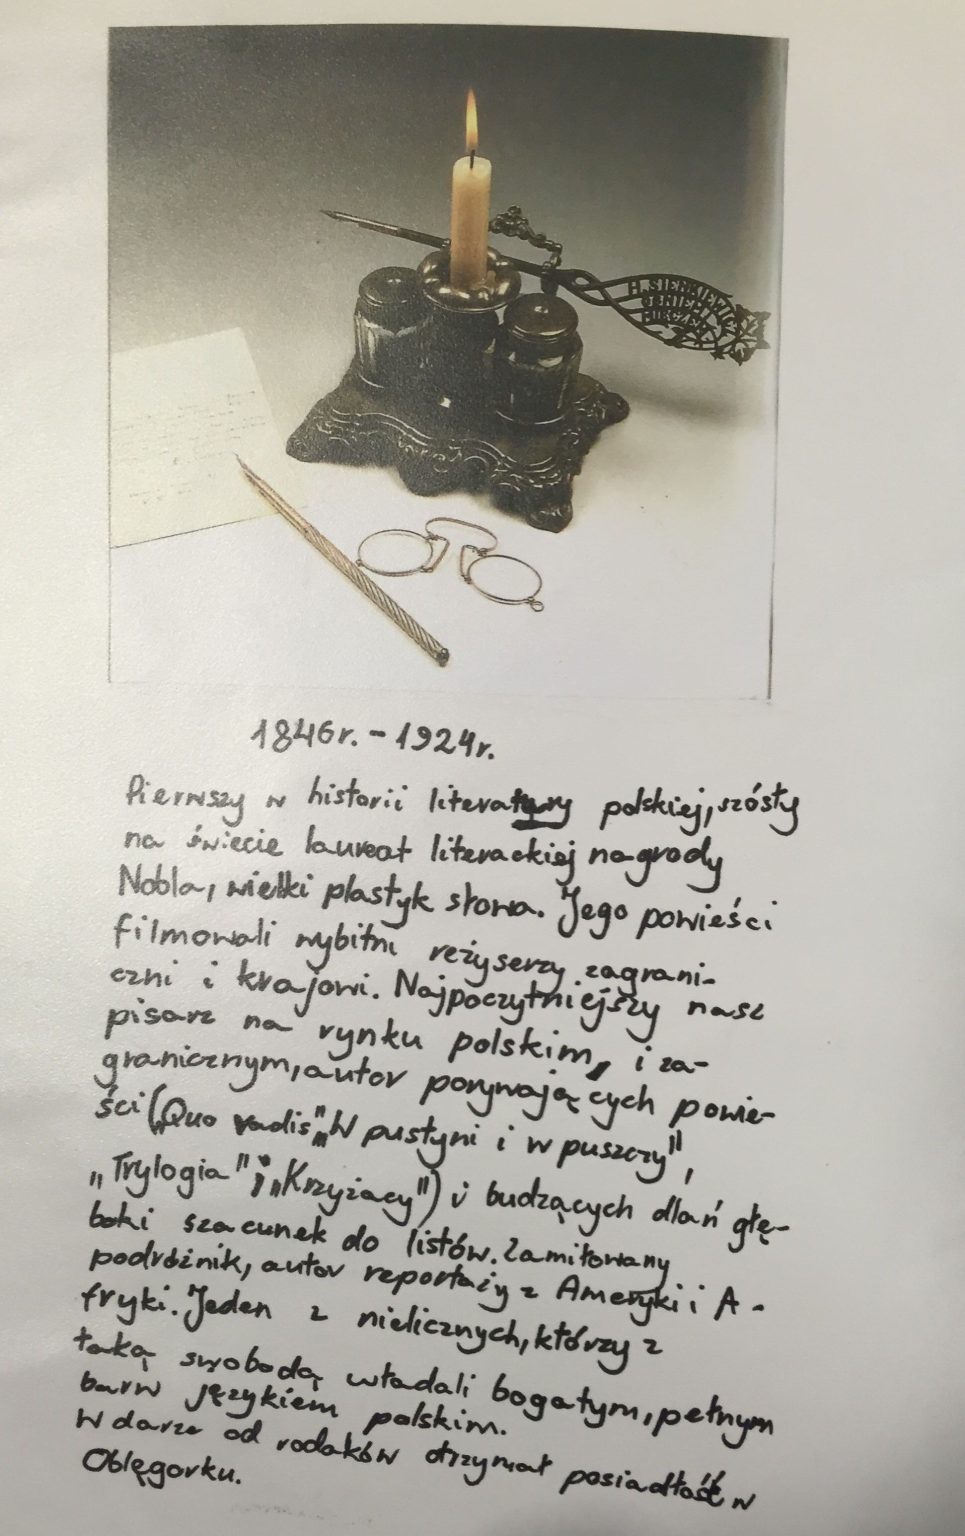 H. SIENKIEWICZ
OGNIEM
MIECZEM
1846r. - 1924r.
Pierwszy w historii literatury polskiej, szósty
na świecie laureat literackiej nagrody
Nobla, wielki plastyk słowa. Jego powieści
filmowali wybitni reżyserzy zagrani-
czni i krajowi. Najpoczytniejszy nasz
pisarz na rynku polskim, i za-
granicznym, autor porywających powie-
ści („Quo vadis", „W pustyni i w puszczy",
„Trylogia" i „Krzyżacy") i budzących dlań głę-
boki szacunek do listów. Zamiłowany
podróżnik, autor reportaży z Ameryki i A-
fryki. Jeden z nielicznych, którzy z
taką swobodą władali bogatym, pełnym
barw językiem polskim.
W darze od rodaków otrzymał posiadłość w
Oblęgorku.